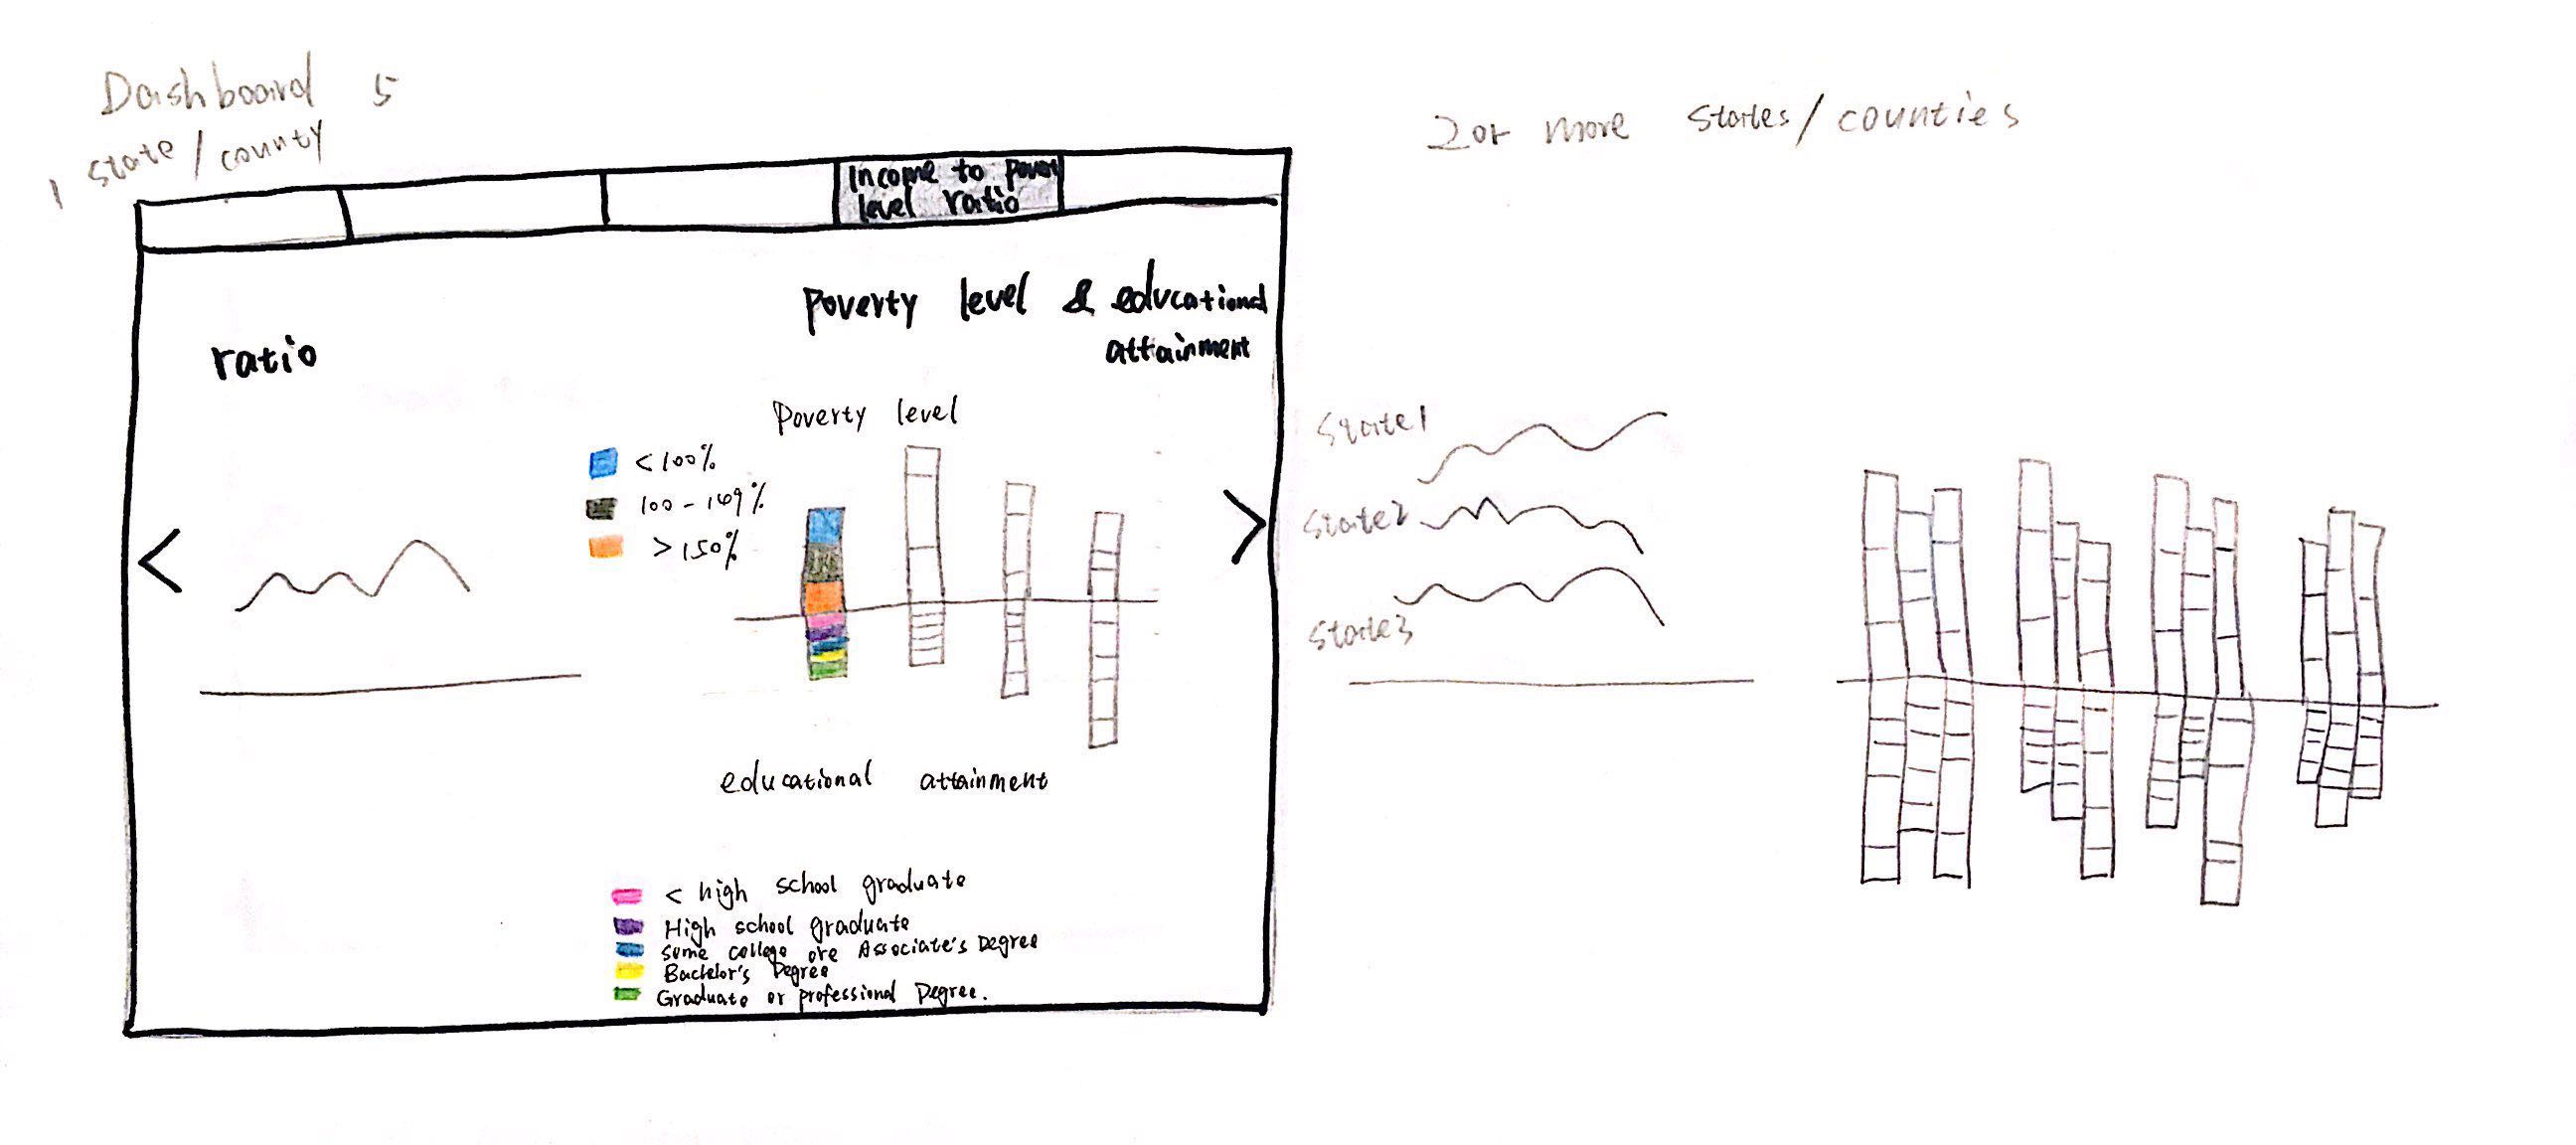 Dashboard 5
1 state/county
2 or more states/counties
Income to povert
level ratio
Poverty level & educational
attainment
ratio
Poverty level
<100%
100-149%
>150%
<
>
educational attainment
< high school graduate
High school graduate
some college ore Associate's Degree
Bachelor's Degree
Graduate or professional Degree.
State1
State2
State3